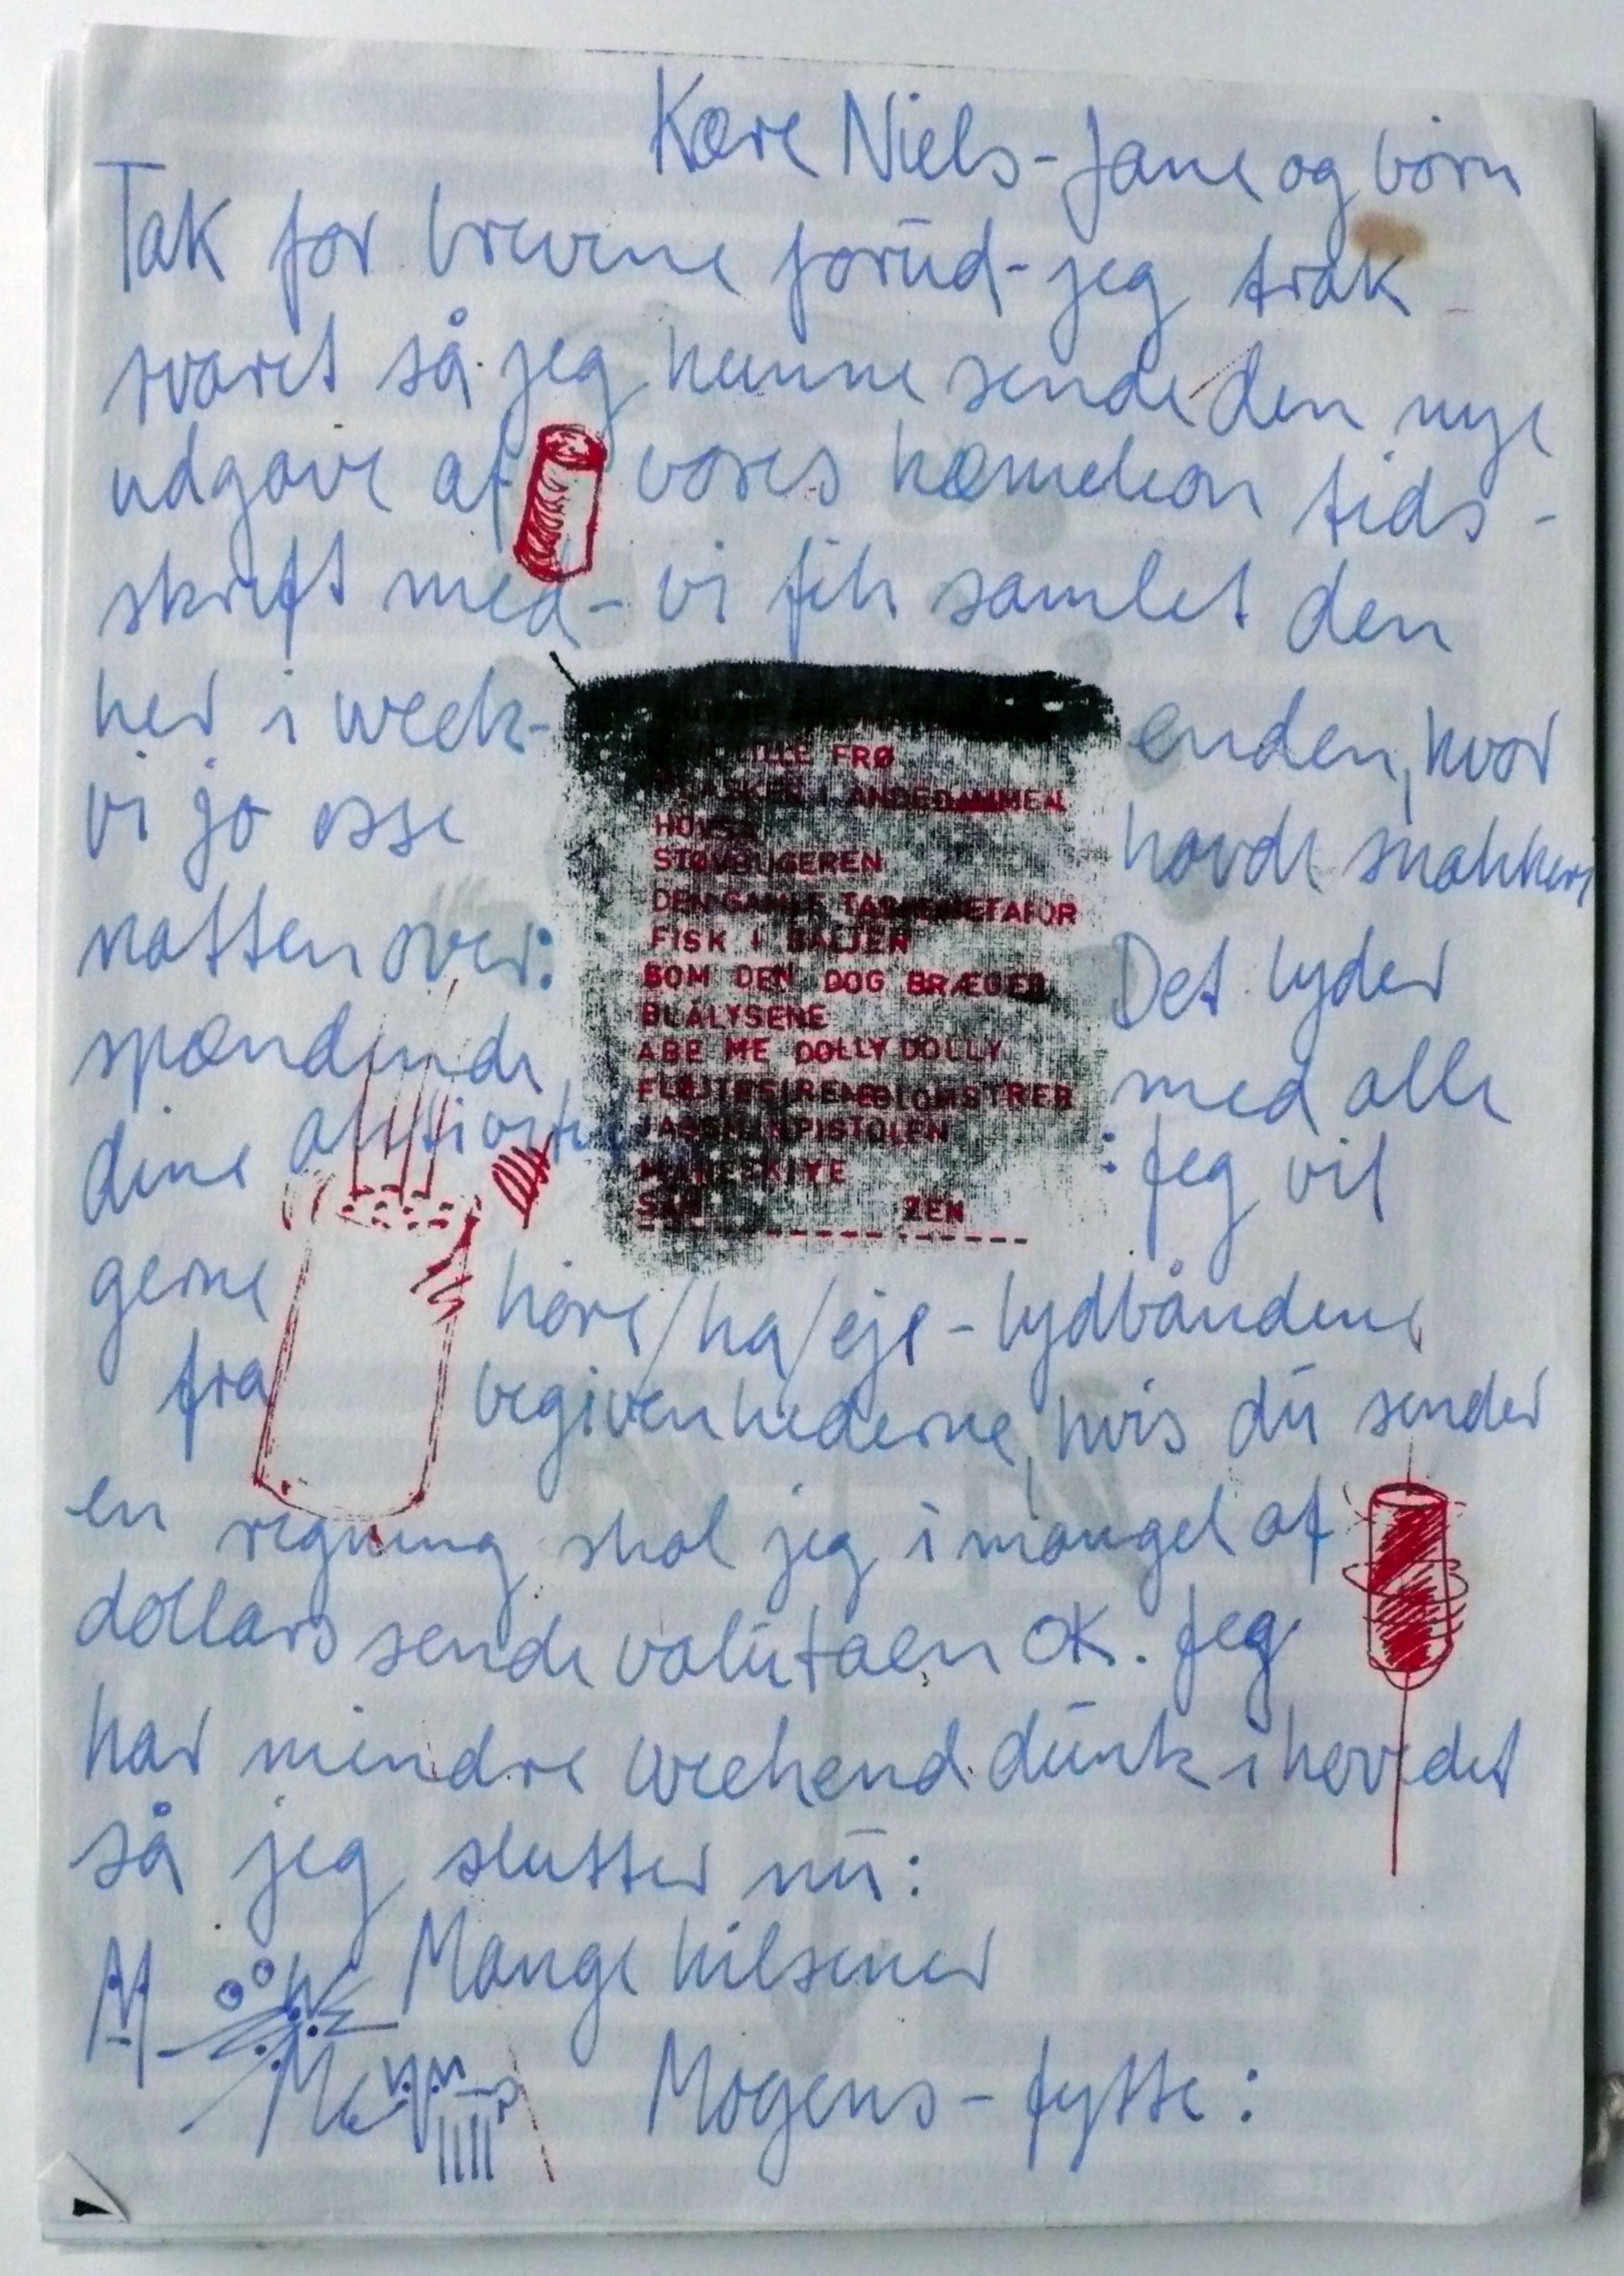 Kære Niels-Jane og børn
Tak for brevene forud-jeg trak
svaret så jeg kunne sende den nye
udgave af vores kæmeleon tids-
skrift med- vi fik samlet den
her i week- enden, hvor
vi jo osse havde snakken
natten over: Det lyder
spændende med alle
dine : Jeg vil
gerne høre/ha/eje-lydbåndene
fra begivenhederne, hvis du sender
en regning skal jeg i mangel af
dollars sende valutaen OK. Jeg
har mindre weekend dunk i hovedet
så jeg slutter nu:
Mange hilsener
Mogens-fytte:
FRØ
I ANDEDAMMEN
STØVSUGEREN
DEN GAMLE
FISK I BALJEN
SOM DEN DOG BRÆGER
BLÅLYSENE
ABE ME DOLLY DOLLY
FLØJTESIRENEBLOMSTRER
PISTOLEN
MÅNESKIVE
ZEN